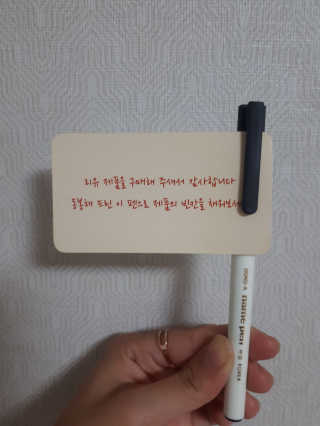 리유 제품을 구매해 주셔서 감사합니다
동봉해 드린 이 펜으로 제품의 빈칸을 채워보세
DONG-A
name pen
KOREA